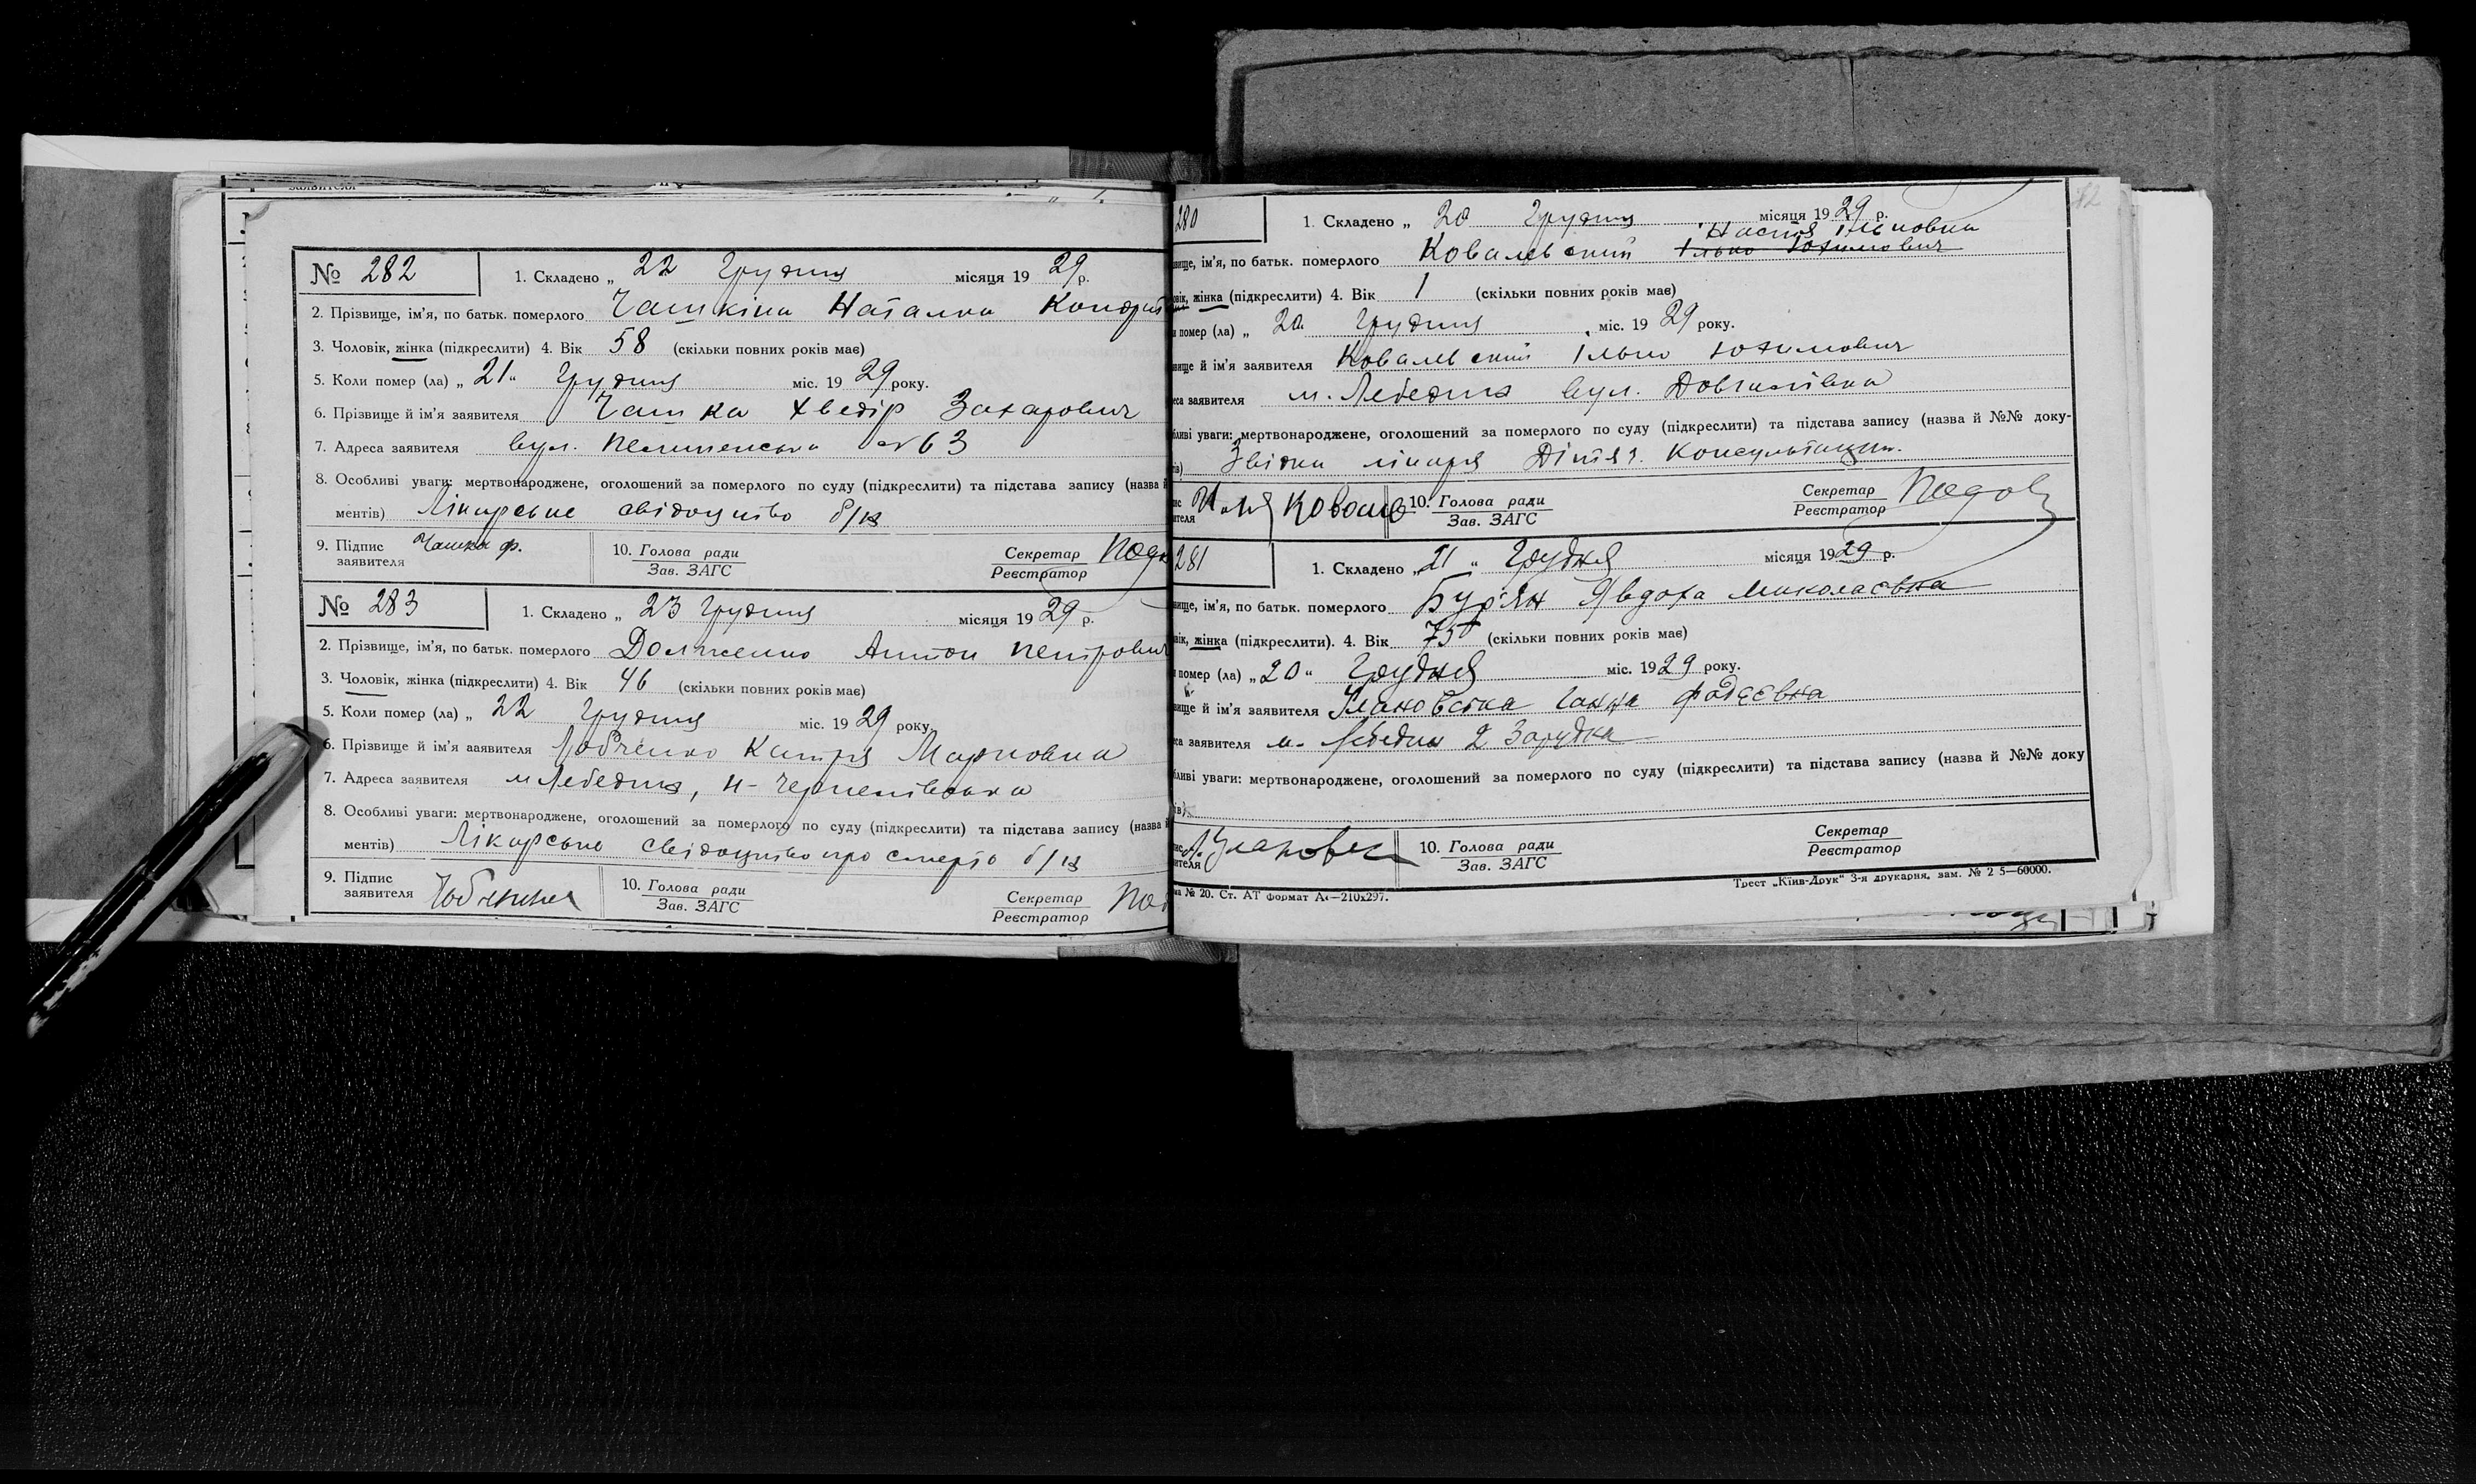 № 282
1. Складено „ 22 грудня місяця 1929 р.
2. Прізвище, ім'я, по батьк. померлого Чашкіна Наталка Кондрат
3. Чоловік, жінка (підкреслити) 4. Вік 58 (скільки повних років має)
5. Коли помер (ла) „ 21 “ грудня міс. 1929 року.
6. Прізвище й ім'я заявителя Чашка Хведір Захарович
7. Адреса заявителя вул. № 63
8. Особливі уваги: мертвонароджене, оголошений за померлого по суду (підкреслити) та підстава запису (назва й
ментів) Лікарське свідоцтво б/н
9. Підпис заявителя Чашка Ф.
10. Голова ради
Зав. ЗАГС
Секретар
Реєстратор
№ 283
1. Складено „ 23 грудня місяця 1929 р.
2. Прізвище, ім'я, по батьк. померлого Долженко Антон Петрович
3. Чоловік, жінка (підкреслити) 4. Вік 46 (скільки повних років має)
5. Коли помер (ла) „ 22 грудня міс. 1929 року
6. Прізвище й ім'я аявителя Катря Марковна
7. Адреса заявителя м Лебедин,
8. Особливі уваги: мертвонароджене, оголошений за померлого по суду (підкреслити) та підстава запису (назва й
ментів) Лікарське свідоцтво про смерть б/н
9. Підпис заявителя
10. Голова ради
Зав. ЗАГС
Секретар
Реєстратор
280
1. Складено „ 20 грудня місяця 1929 р.
Настя Ільковна
вище, ім'я, по батьк. померлого Ковальський Ілько Юхимович
вік, жінка (підкреслити) 4. Вік 1 (скільки повних років має)
помер (ла) „ 20 “ грудня міс. 1929 року.
вище й ім'я заявителя Ковальський Ілько Юхимович
са заявителя м. Лебедин вул. Довгалівка
бливі уваги: мертвонароджене, оголошений за померлого по суду (підкреслити) та підстава запису (назва й №№ доку-
тів) Звідка лікаря Дитяч. Консультации.
10. Голова ради
Зав. ЗАГС
Секретар
Реєстратор
281
1. Складено „ 21 “ Грудня місяця 1929 р.
вище, ім'я, по батьк. померлого Бур'ян Явдоха Миколаєвна
вік, жінка (підкреслити). 4. Вік 75 (скільки повних років має)
помер (ла) „ 20 “ Грудня міс. 1929 року.
вище й ім'я заявителя Улановська Ганна Фадєєвна
са заявителя м. Лебедин 2 Зарудка
бливі уваги: мертвонароджене, оголошений за померлого по суду (підкреслити) та підстава запису (назва й №№ доку
ів)
10. Голова ради
Зав. ЗАГС
Секретар
Реєстратор
ма № 20. Ст. АТ Формат А4—210х297.
Трест „Київ-Друк“ 3-я друкарня, зам. № 2 5—60000.